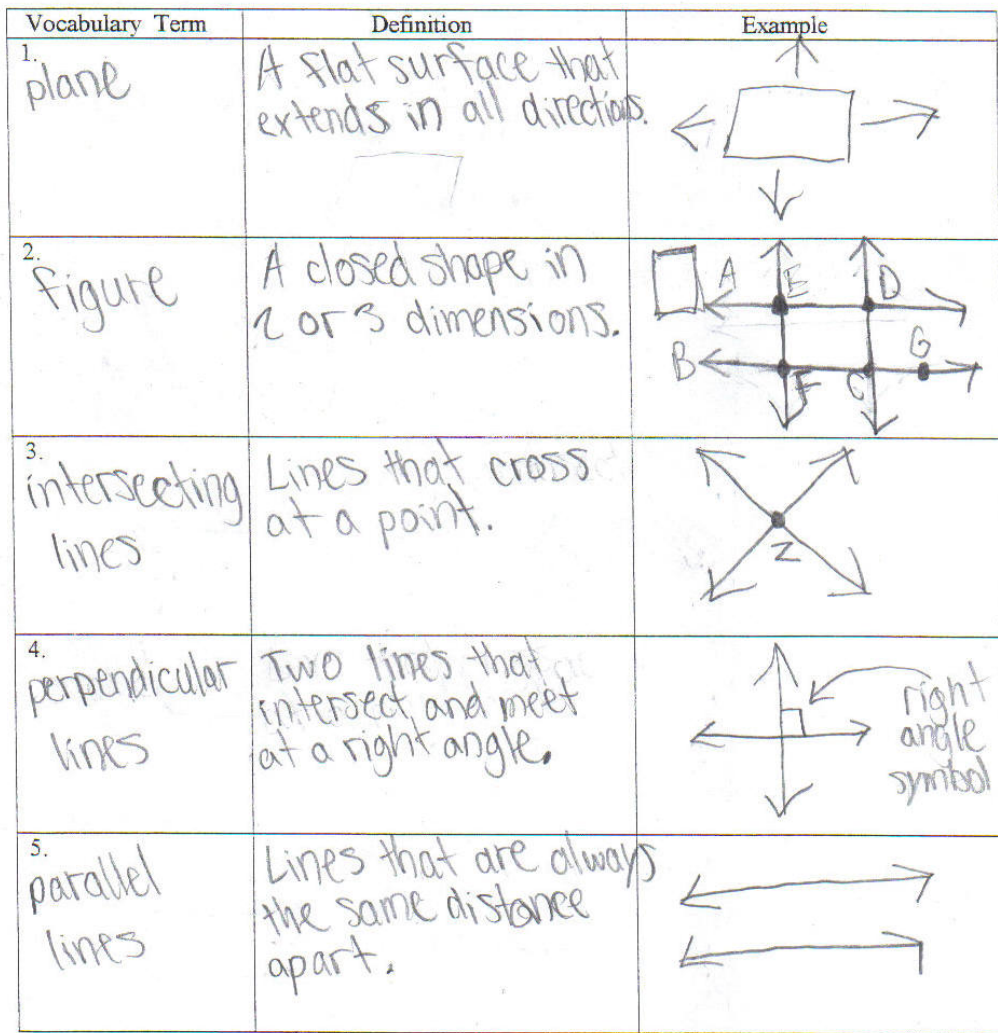 Vocabulary Term
Definition
Example
1.
plane
A flat surface that
extends in all directions.
2.
figure
A closed shape in
2 or 3 dimensions.
A
E
D
B
F
C
G
3.
intersecting
lines
Lines that cross
at a point.
Z
4.
perpendicular
lines
Two lines that
intersect and meet
at a right angle.
right
angle
symbol
5.
parallel
lines
Lines that are always
the same distance
apart.